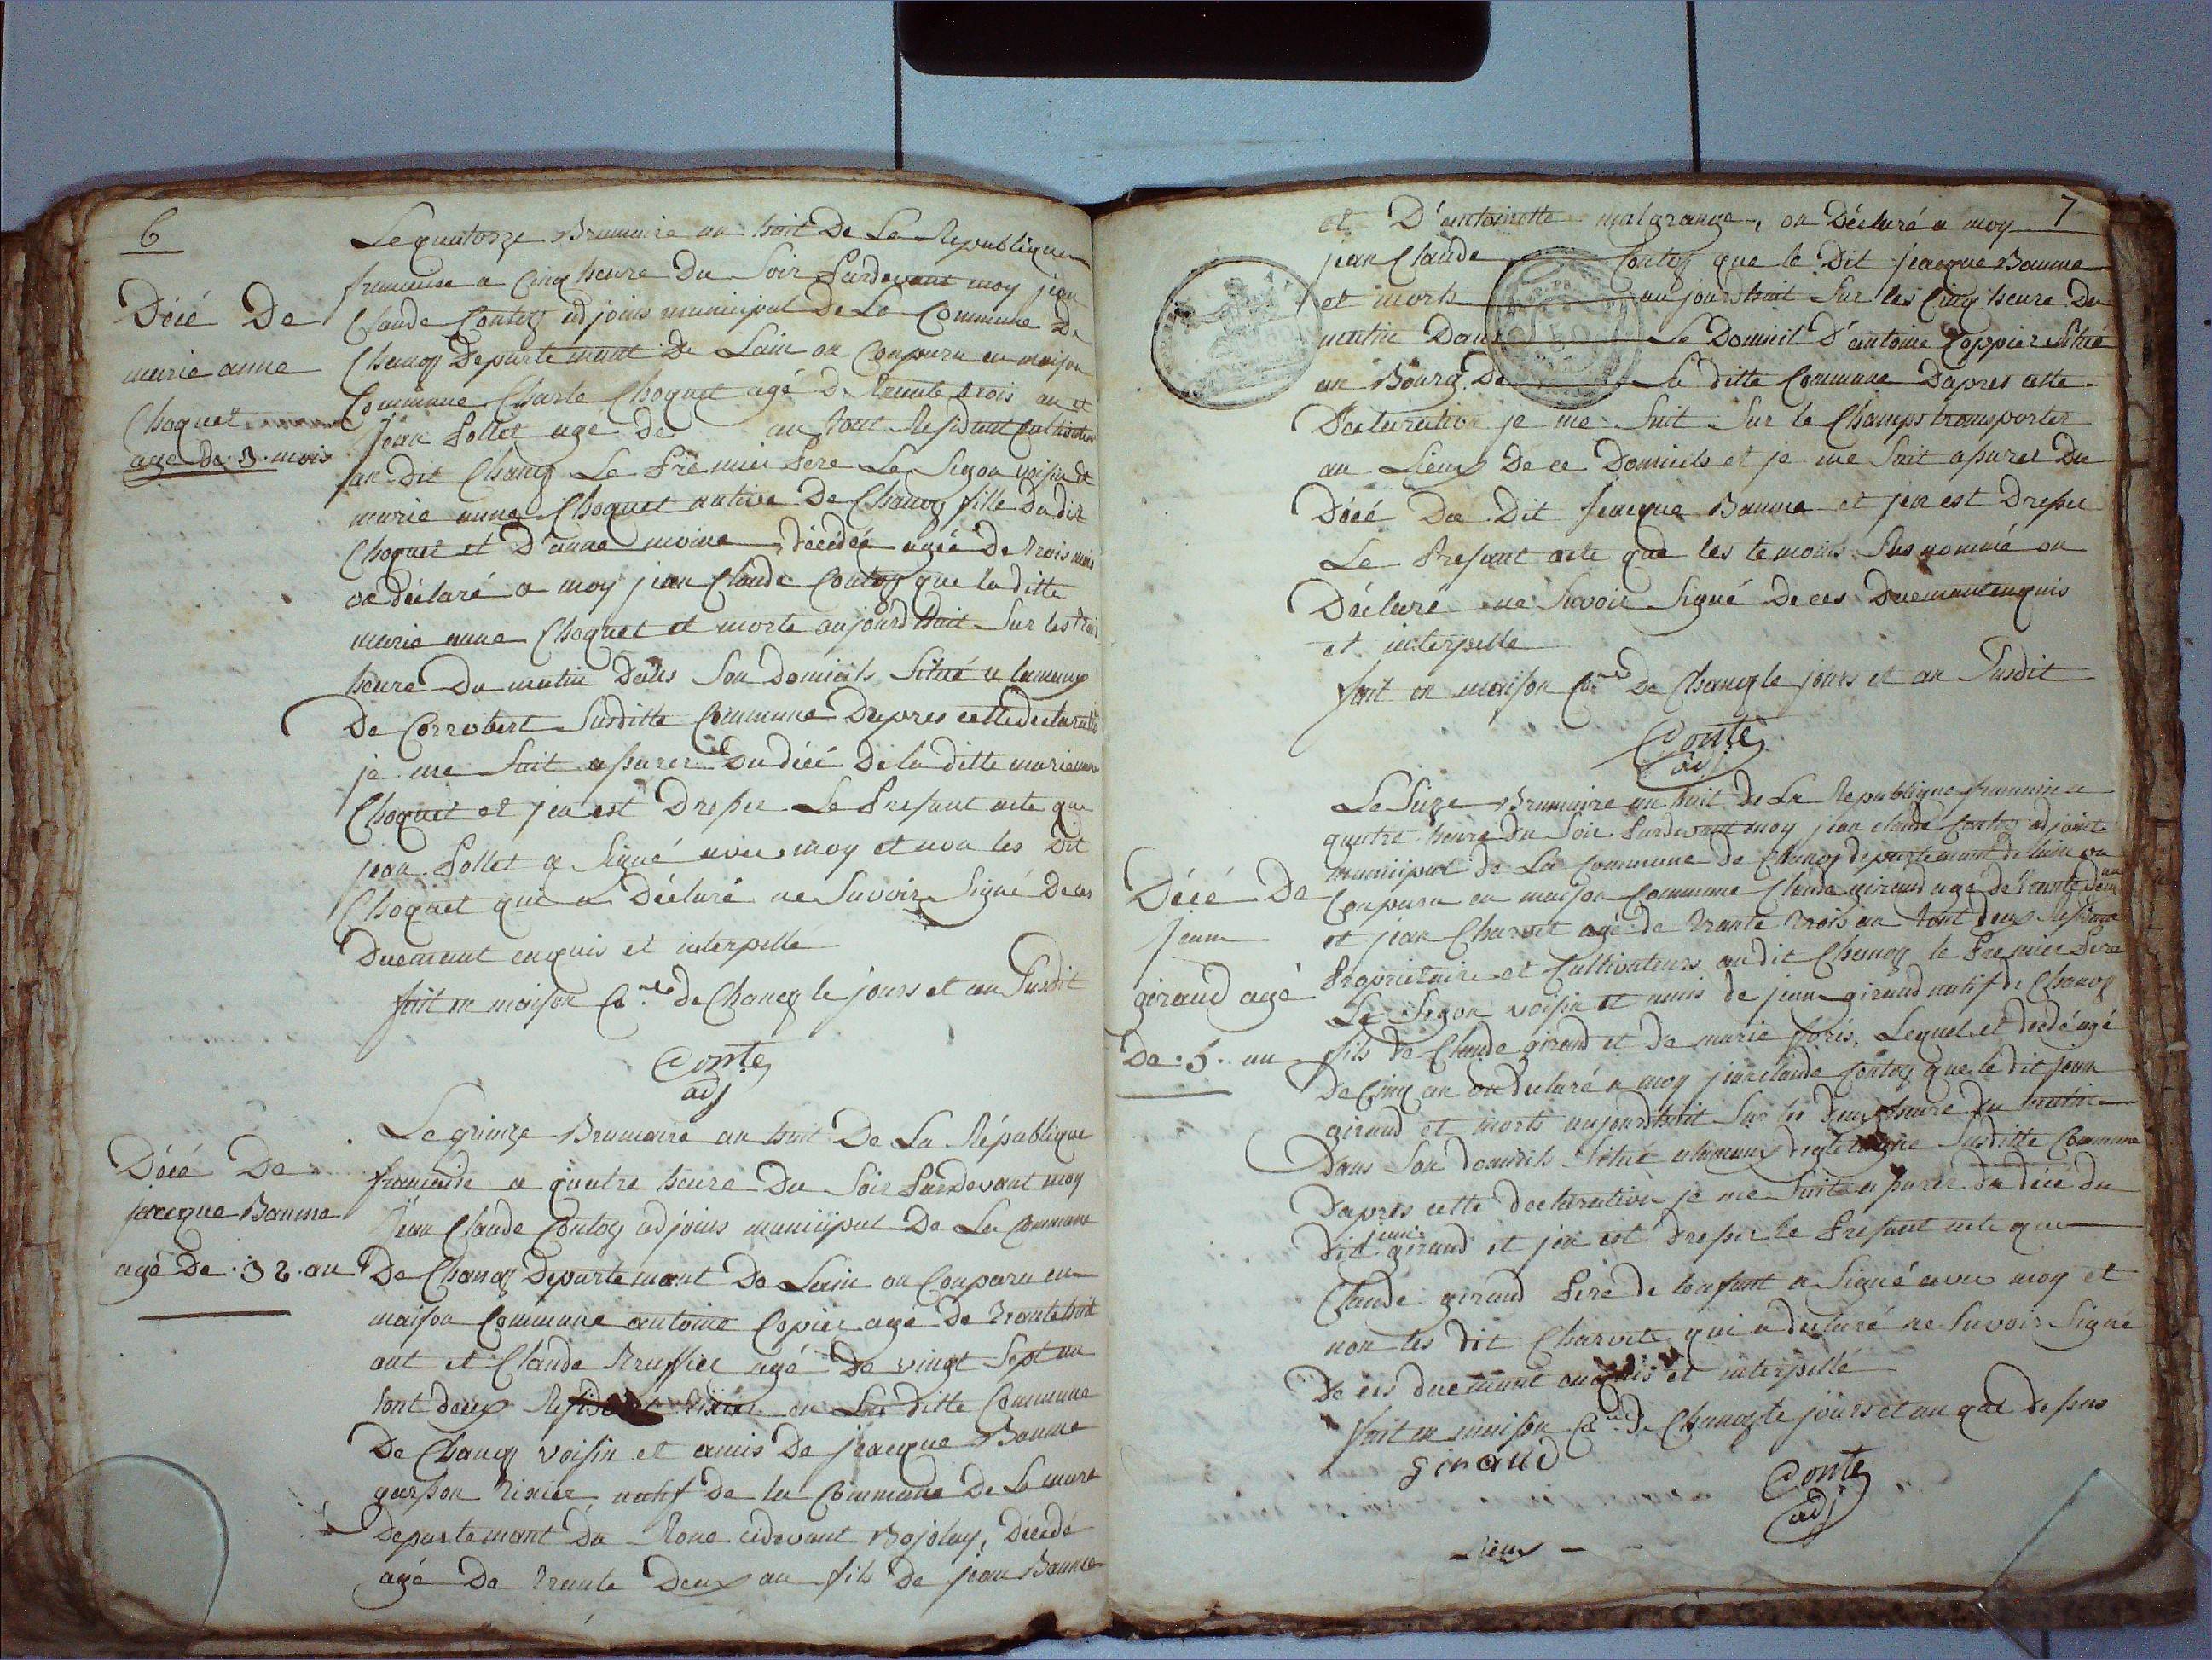 6
Le quatorze Brumaire an huit De La Republique
francaise a Cinq heure Du Soir Pardevant moy jean
Claude Contey adjoins municipal De La Commune De
Chanoz Departemant De Lain on Conparu en maison
Commune Charle Choquet agé De Trante trois an et
jean Pollet agé de an tout Residant Cultivateur
au Dit Chanoz Le Premier Pere Le Segon voisin et
marie anne Choquet native De Chanoz fille Dudit
Choquet et D'anne moine, Décédée agée De trois mois
on déclaré a moy jean Claude Contoz que la ditte
marie anne Choquet et morte aujourdhuit Sur les trois
heure Du matin Dans Son Domicils Situé a lamaux
De Corrobert Susditte Commune Dapres cette declaration
je me Suit assurer Du décé De la ditte marie anne
Choquet et jen est Dresser Le Presant acte que
jean Pollet a Signé avec moy et non les Dit
Choquet qui a Déclaré ne Savoir Signé De ces
Duemant enquis et interpellé
fait en maison Cne De Chanoz le jours et an Susdit
Conte
adj
Décé De
marie anne
Choquet
agé de 3 mois
Le quinze Brumaire an huit De La République
francaise a quatre heure Du Soir Pardevant moy
jean Claude Contoz adjoins municipal De La Commune
De Chanoz Departemant De Lain on Conparu en
maison Commune antoine Copier agé De Trante huit
ant et Claude Truffier agé De vingt Sept an
tout deux en La ditte Commune
De Chanoz voisin et amis De jeacque Baume
garson Tixier natif de la Commune De Lamure
Departemant Du Rone cidevant Bojolay, Décédé
agé De Trante Deux an fils De jean Baume
Décé De
jeacque Baume
agé De 32 an
7
et D'antoinette malgrange, on Déclaré a moy
jean Claude Contoz que le Dit jeacque Baume
et morts aujourdhuit Sur les Cinq heure Du
matin Dans Le Domicil D'antoine Coppier Situé
au Bourg De La ditte Commune Dapres cette
Declaration je me Suit Sur le Champs transporter
au Lieux De ce Domicils et je me Suit assurer Du
Décé Du Dit jeacque Baume et jen est Dresser
Le Presant acte que les temoins Susnommé on
Déclaré ne Savoir Signé De ces Duemant enquis
et interpelle
fait en maison Cne De Chanoz le jours et an Susdit
Conte
adj
Le Sieze Brumaire an huit De La Republique francaise a
quatre heure du Soir Pardevant moy jean claude Contoz adjoint
municipal de La Commune de Chanoz departemant de lain on
Conparu en maison Commune Claude giraud agé de trante deux an
et jean Charvet agé de trante trois an tout deux
Proprietaire et Cultivateurs audit Chanoz le Premier Pere
Le Segon voisin et amis de jean giraud natif de Chanoz
fils de Claude giraud et de marie Lequel et decdé agé
De Cinq an on declaré a moy jean claude Contoz que le dit jean
giraud et morts aujourdhuit Sur les deux heure du matin
Dans Son domicils Situé a lamaux Susditte Commune
Dapres cette declaration je me Suit assurer du décé du
dit jean giraud et jen est dresser le Presant acte que
Claude giraud Pere de lenfant a Signé avec moy et
non les dit Charvet qui a declaré ne Savoir Signé
De ces duemant anquis et interpellé
fait en maison Cne de Chanoz le jours et an que dessus
giraud
Conte
adj
Décé De
jean
giraud agé
De 5 an